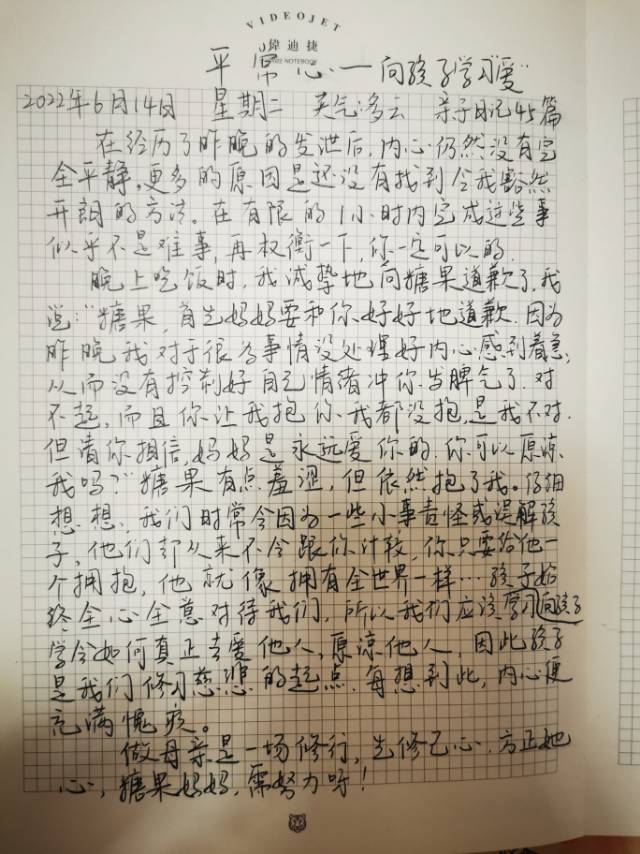 VIDEOJET
偉迪捷
NOTEBOOK
平常心——向孩子学习“爱”
2022年6月14日 星期二 天气:多云 亲子日记45篇
在经历了昨晚的发泄后,内心仍然没有完
全平静,更多的原因是还没有找到令我豁然
开朗的方法。在有限的1小时内完成这些事
似乎不是难事,再权衡一下,你一定可以的.
晚上吃饭时,我诚挚地向糖果道歉了,我
说:“糖果,首先妈妈要和你好好地道歉.因为
昨晚我对于很多事情没处理好内心感到着急,
从而没有控制好自己情绪冲你发脾气了.对
不起,而且你让我抱你,我都没抱,是我不对.
但请你相信,妈妈是永远爱你的.你可以原谅
我吗?”糖果有点羞涩,但依然抱了我。仔细
想想,我们时常会因为一些小事责怪或误解孩
子,他们却从来不会跟你计较,你只要给他一
个拥抱,他就像拥有全世界一样…孩子始
终全心全意对待我们,所以我们应该学习向孩子
学会如何真正去爱他人,原谅他人,因此孩子
是我们修习慈悲的起点.每想到此,内心便
充满愧疚。
做母亲是一场修行,先修己心,方正她
心,糖果妈妈,需努力呀!